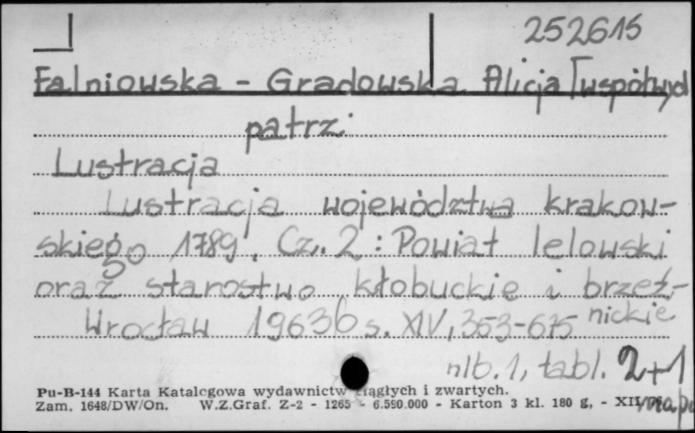 252615
Falniowska - Gradowska Alicja [współwyd
patrz:
Lustracja
Lustracja województwa krakow-
skiego 1789. Cz. 2 : Powiat lelowski
oraz starostwo kłobuckie i brzeź-
nickie
Wrocław 1963 s. XIV, 353-675
nlb. 1, tabl. 2+1
mapa
Pu-B-144 Karta Katalogowa wydawnictw ciągłych i zwartych.
Zam. 1648/DW/On. W.Z.Graf. Z-2 - 1265 - 6.590.000 - Karton 3 kl. 180 g, - XII